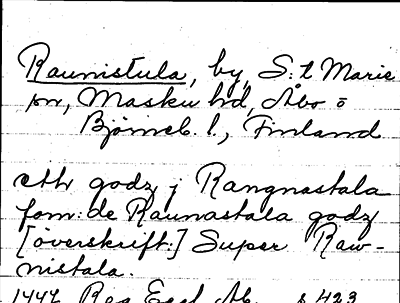 Raunistula, by, S:t Marie
sn, Masku hd, Åbo o
Björneb. l., Finland
eth godz j Rangnastala
fom: de Raunastala godz
[överskrift:] Super Raw-
nistala.
1447 Reg Eccl Ab. s 423